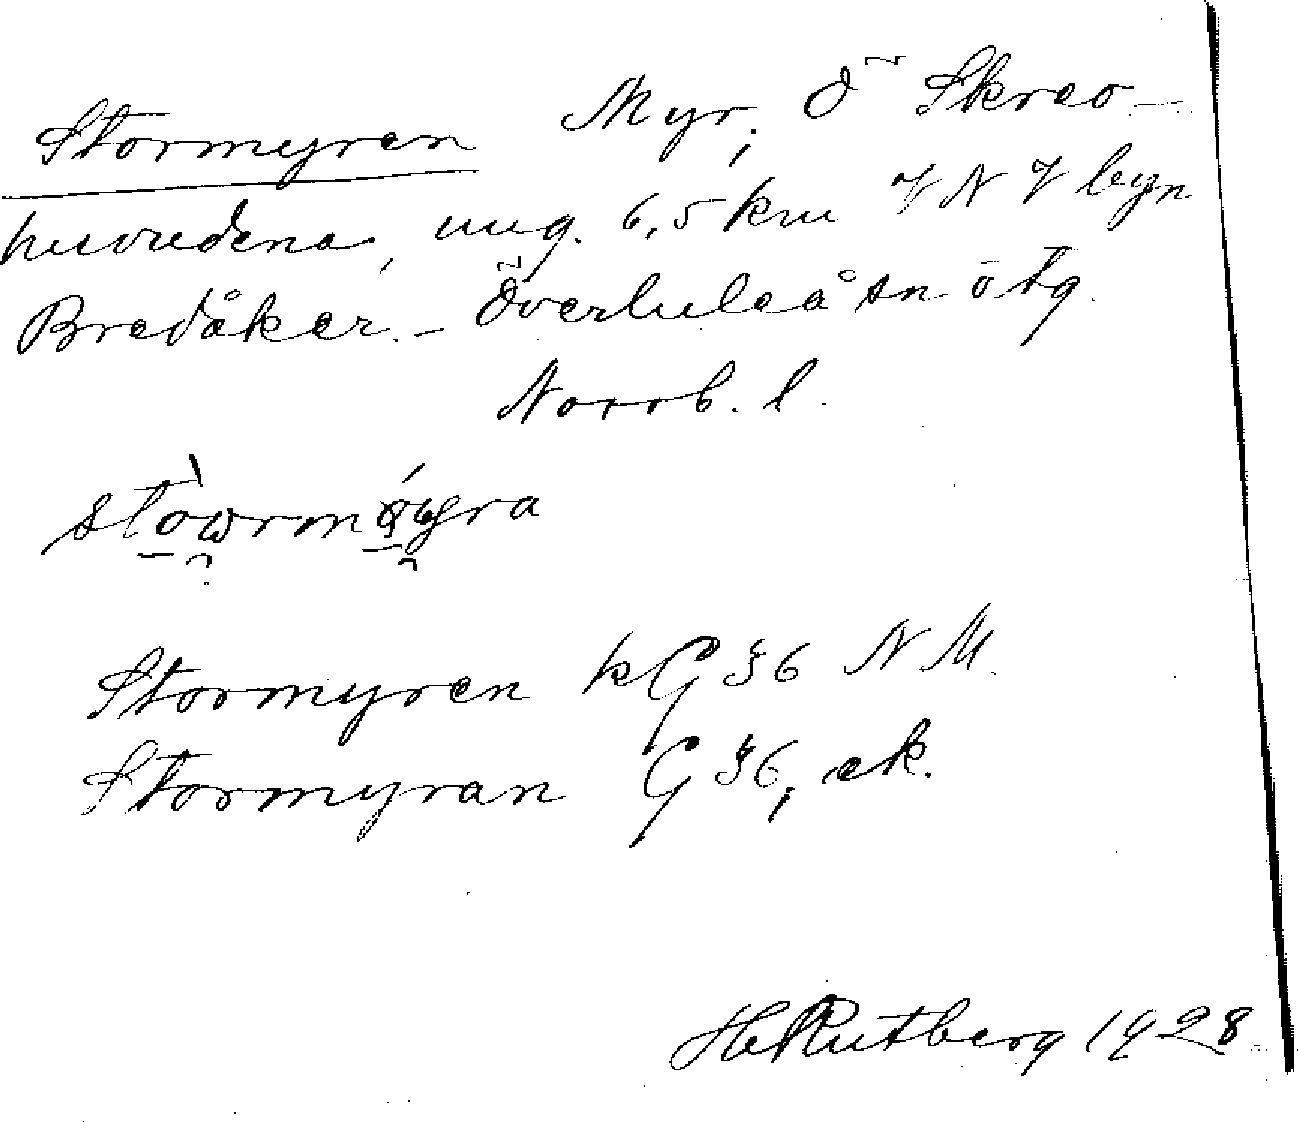 Stormyren Myr, Ö Skreo-
huvudena, ung. 6,5 km VNV byn
Bredåker. - Överluleå sn ö tg
Norrb. l.
Stormyren kG §6 NM.
Stormyran G §6, ek.
HRutberg 1928